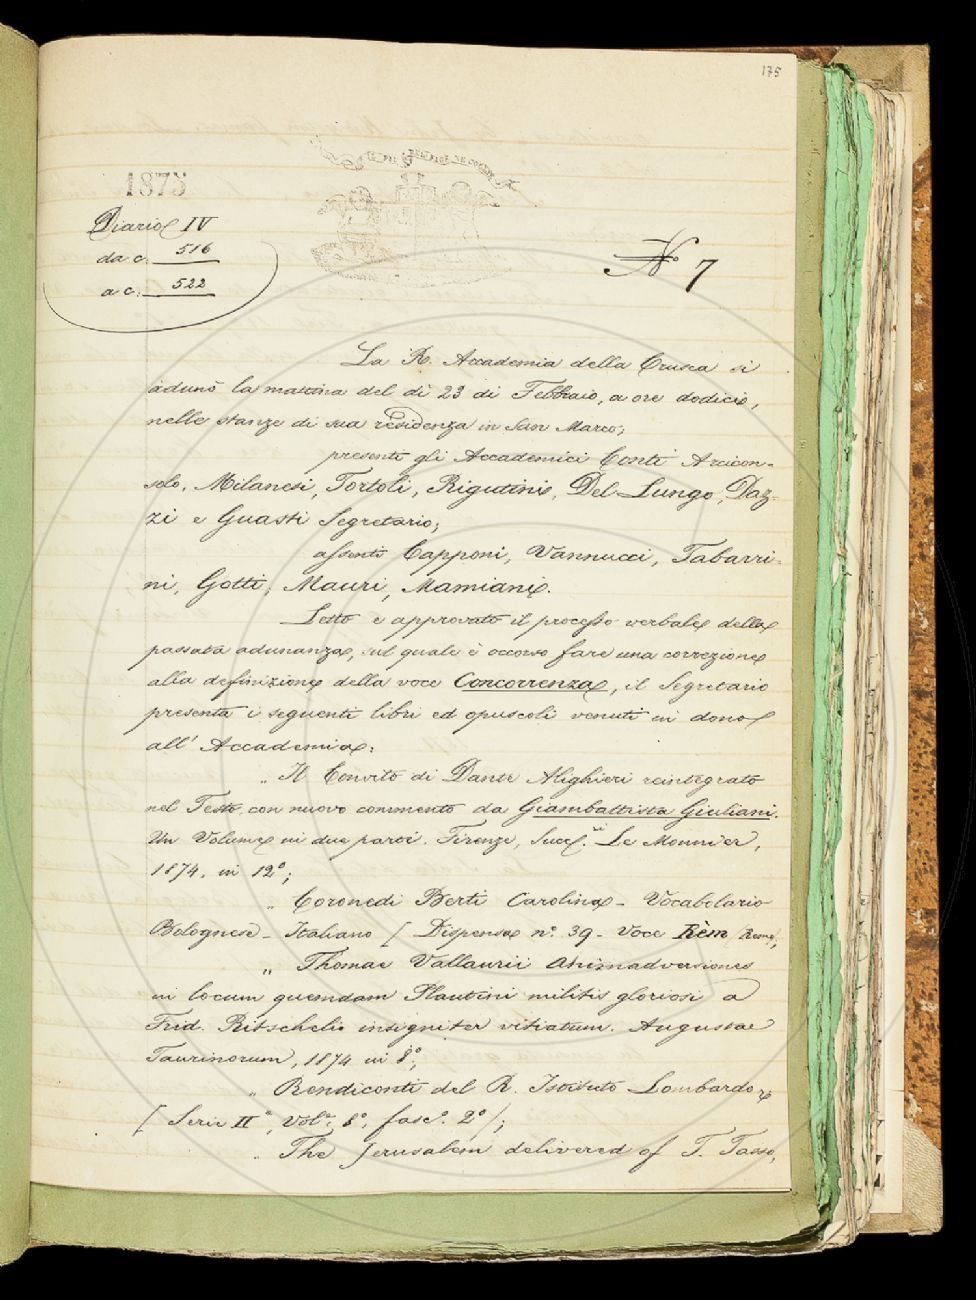 175
1875
Diario IV
da c. 516
a c. 522
N.° 7
La R. Accademia della Crusca si
adunò la mattina del dì 23 di Febbraio, a ore dodici,
nelle stanze di sua residenza in San Marco;
presenti gli Accademici Conti Arcicon-
solo, Milanesi, Tortoli, Rigutini, Del Lungo, Daz-
zi e Guasti Segretario;
assenti Capponi, Vannucci, Tabarri-
ni, Gotti, Mauri, Mamiani.
Letto e approvato il processo verbale della
passata adunanza, sul quale è occorso fare una correzione
alla definizione della voce Concorrenza, il Segretario
presenta i seguenti libri ed opuscoli venuti in dono
all' Accademia:
„ Il Convito di Dante Alighieri reintegrato
nel Testo con nuovo commento da Giambattista Giuliani.
Un Volume in due parti. Firenze, Succ.ri Le Monnier,
1874. in 12°;
„ Coronedi Berti Carolina - Vocabolario
Bolognese - Italiano / Dispensa n.° 39 - Voce Rèm
„ Thomae Vallaurii animadversiones
in locum quemdam Plautini militis gloriosi a
Frid. Ritschelio insigniter vitiatum. Augustae
Taurinorum, 1874 in 8°;
„ Rendiconti del R. Istituto Lombardo
/ Serie II.a, Vol.e 8°, fasc.° 2° /;
„ The Jerusalem delivered of T. Tasso,